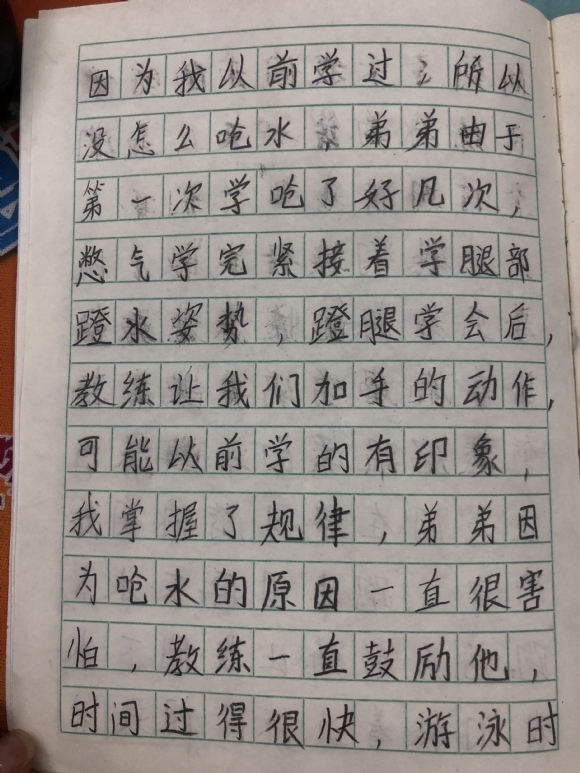 因为我以前学过，所以
没怎么呛水，弟弟由于
第一次学呛了好几次，
憋气学完紧接着学腿部
蹬水姿势，蹬腿学会后，
教练让我们加手的动作，
可能以前学的有印象，
我掌握了规律，弟弟因
为呛水的原因一直很害
怕，教练一直鼓励他，
时间过得很快，游泳时